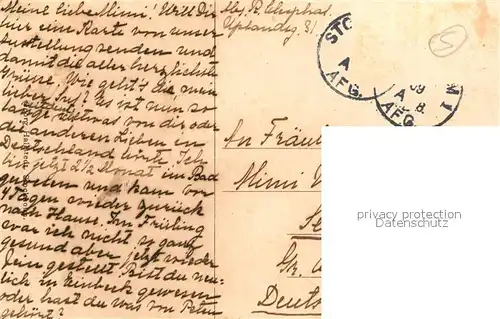 Meine liebe Mimi! Will Dir
hier eine Karte von unser
Ausstellung senden und
damit die aller herzlichsten
Grüsse. Wie geht's Dir mein
liebes
lange etwas von dir oder
de anderen Lieben in
Deutschland hörte. Ich
bin jetzt 2½ Monat im Bad
gewesen und kam vor
4 Tagen wieder zurück
nach Hause. Im Frühling
war ich nicht so ganz
gesund aber jetzt wieder
fein gestellt. Bist du neu-
lich in Einbeck gewesen
oder hast du was von
gehört?
Uplandsg.
STO
A
AFG.
09
A 8.
AFG
5
An Fräul
Mimi
Deuts
privacy protection
Datenschutz